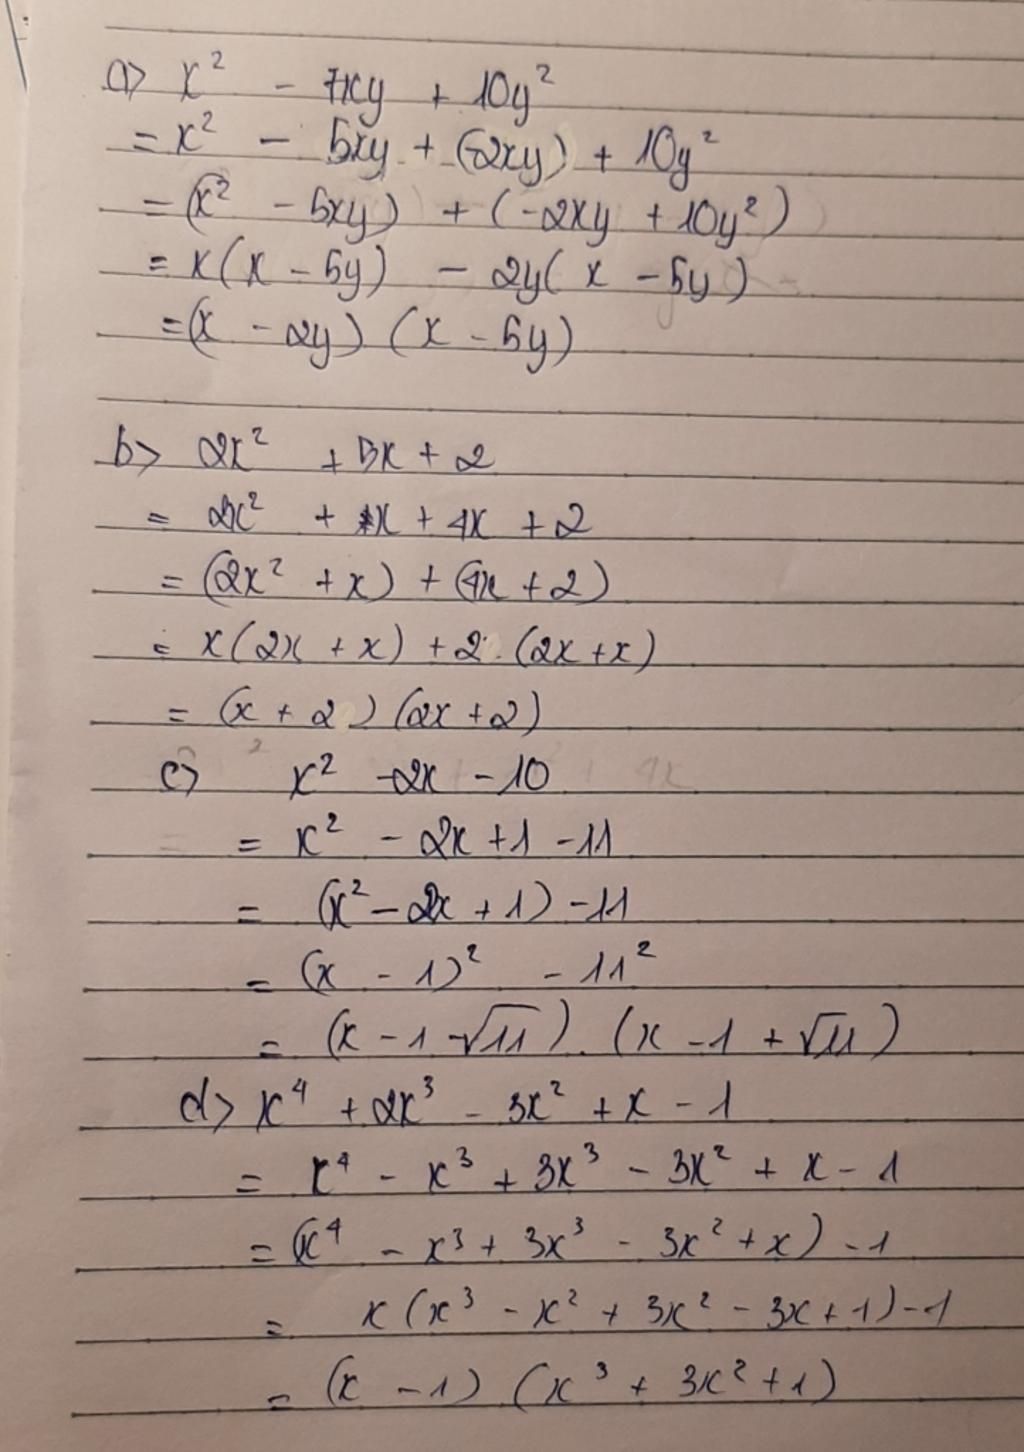 a> x² - 7xy + 10y²
= x² - 5xy + (-2xy) + 10y²
= (x² - 5xy) + (-2xy + 10y²)
= x(x - 5y) - 2y(x - 5y)
= (x - 2y) (x - 5y)
b> 2x² + 5x + 2
= 2x² + 1x + 4x + 2
= (2x² + x) + (4x + 2)
= x(2x + x) + 2.(2x + x)
= (x + 2) (2x + 2)
c> x² - 2x - 10
= x² - 2x + 1 - 11
= (x² - 2x + 1) - 11
= (x - 1)² - 11²
= (x - 1 - √11).(x - 1 + √11)
d> x⁴ + 2x³ - 3x² + x - 1
= x⁴ - x³ + 3x³ - 3x² + x - 1
= (x⁴ - x³ + 3x³ - 3x² + x) - 1
= x(x³ - x² + 3x² - 3x + 1) - 1
= (x - 1) (x³ + 3x² + 1)